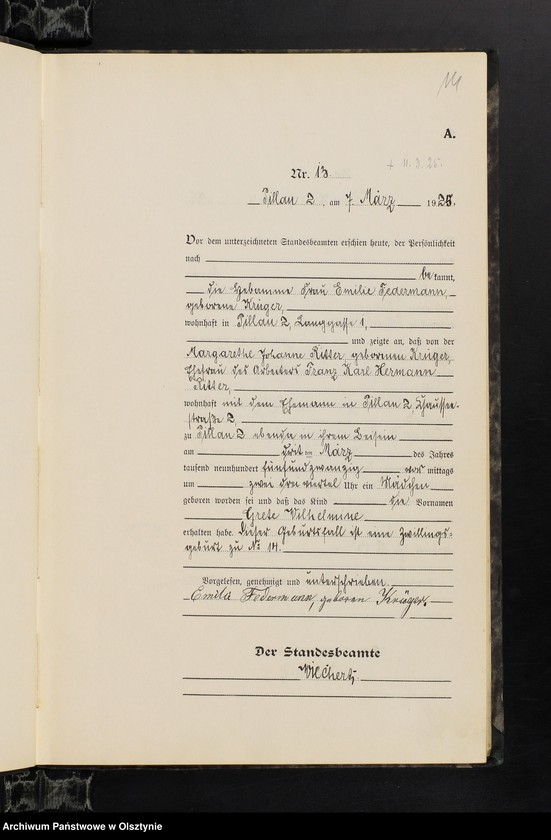 A.
+ 11. 3. 25.
Nr. 13.
Pillau 2, am 7. März 1925.
Vor dem unterzeichneten Standesbeamten erschien heute, der Persönlichkeit
nach
bekannt,
die Hebamme Frau Emilie Federmann,
geborene Krüger,
wohnhaft in Pillau 2, Langgasse 1,
und zeigte an, daß von der
Margarethe Johanne Ritter, geborenen Krüger,
Ehefrau des Arbeiters Franz Karl Hermann
Ritter,
wohnhaft mit dem Ehemann in Pillau 2, Chaussee-
straße 2,
zu Pillau 2 ebenda in ihrem Beisein
am dritten März des Jahres
tausend neunhundert fünfundzwanzig vormittags
um zwei drei viertel Uhr ein Mädchen
geboren worden sei und daß das Kind die Vornamen
Grete Wilhelmine
erhalten habe. Dieser Geburtsfall ist eine Zwillings-
geburt zu No 14.
Vorgelesen, genehmigt und unterschrieben.
Emilie Federmann, geboren Krüger.
Der Standesbeamte
Wiechert,
Archiwum Państwowe w Olsztynie